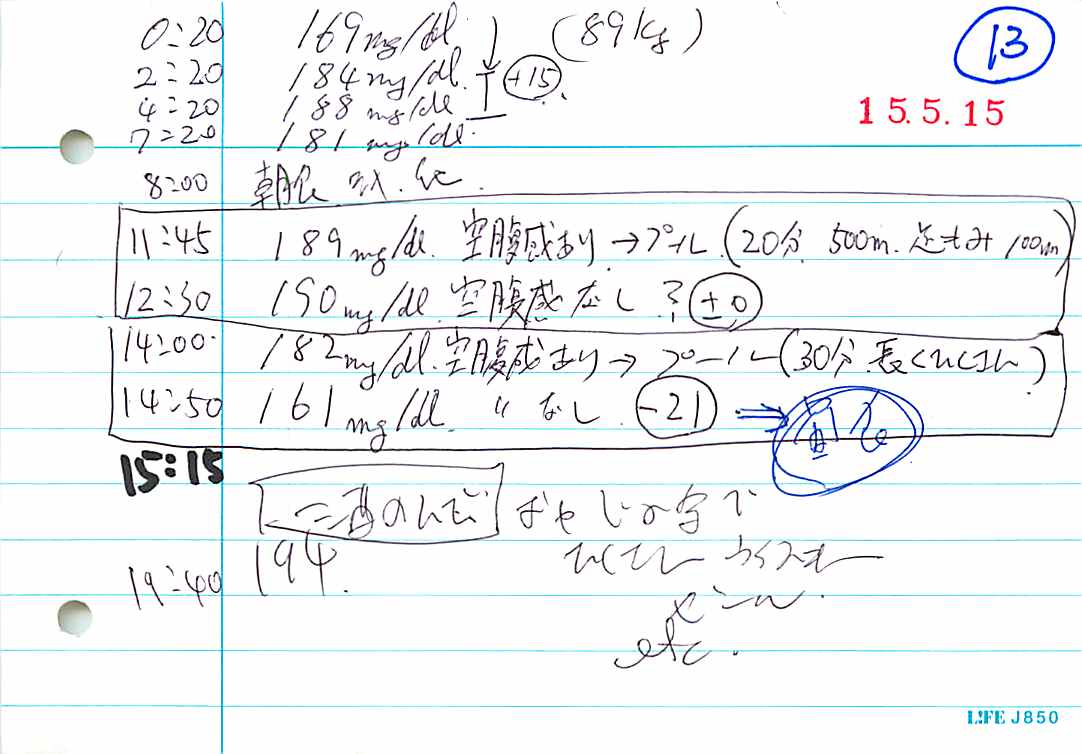 13
15.5.15
0:20 169mg/dl (89kg)
2:20 184mg/dl. +15
4:20 188mg/dl
7:20 181mg/dl.
8:00 朝食
11:45 189mg/dl. 空腹感あり→プール(20分 500m. 100m)
12:30 190mg/dl. 空腹感なし? ±0
14:00 182mg/dl. 空腹感あり→プール(30分 長く)
14:50 161mg/dl 〃 なし -21 ⇒
15:15
19:40 194.
etc.
L!FE J850